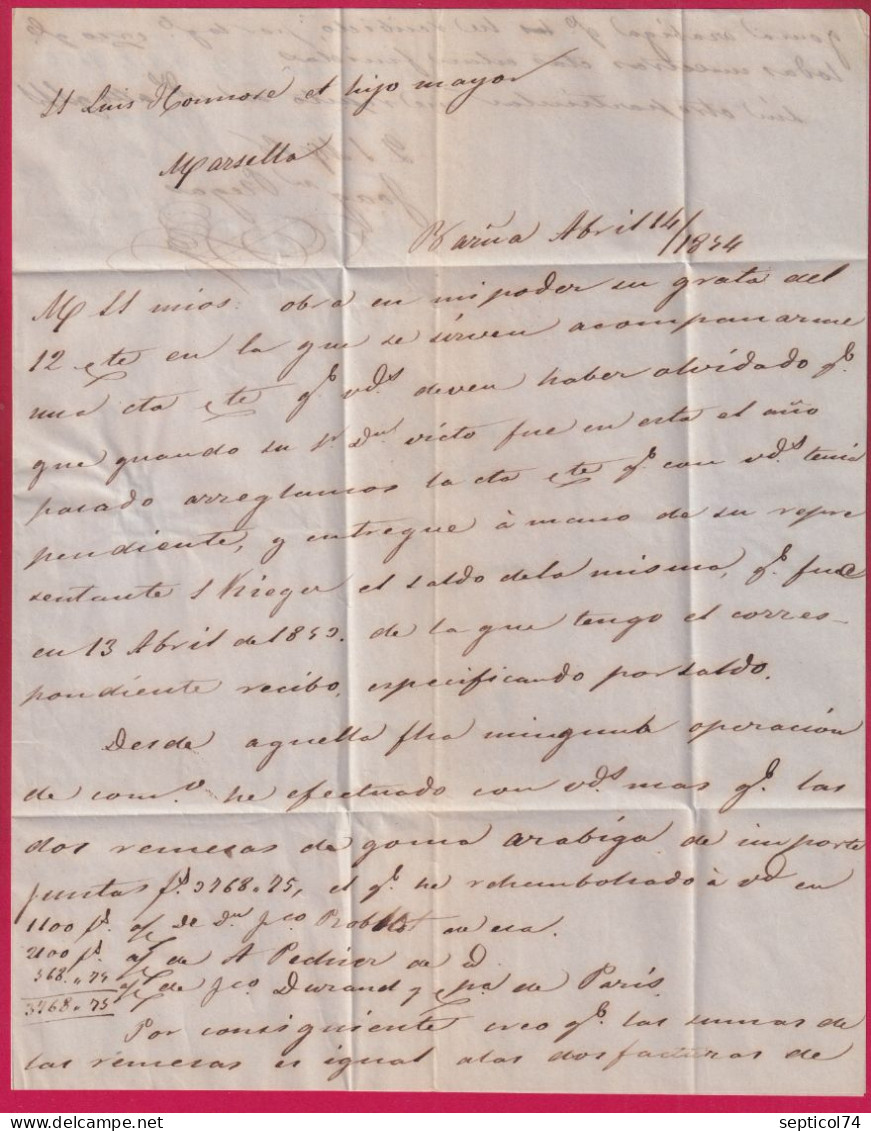 SS Luis Honnoré et hijo mayor
Marsella
Barña Abril 14/1854
M SS mios: obra en mi poder su grata del
12 cte en la que se sirven acompanarme
una cta cte qe vds deven haber olvidado qe
que quando su Sr Dn victo fue en esta el año
pasado arreglamos la cta cte qe con vds tenia
pendiente, y entregue à mano de su repre
sentante S Krieger el saldo dela misma, qe fue
en 13 Abril de 1853. de la que tengo el corres-
pondiente recibo, especificando por saldo.
Desde aquella fha minguna operacion
de como he efectuado con vds mas qe las
dos remesas de goma arabiga de importe
juntas fs 3768.75, el qe he rehembolsado à vd en
1100 fs de Dn fco de esa.
2100 fs de A Pechier de D
568.75 de fco Durand y cpa de Paris.
3768.75
Por consiguiente creo qe las sumas de
las remesas es igual alas dos facturas de
septicol74